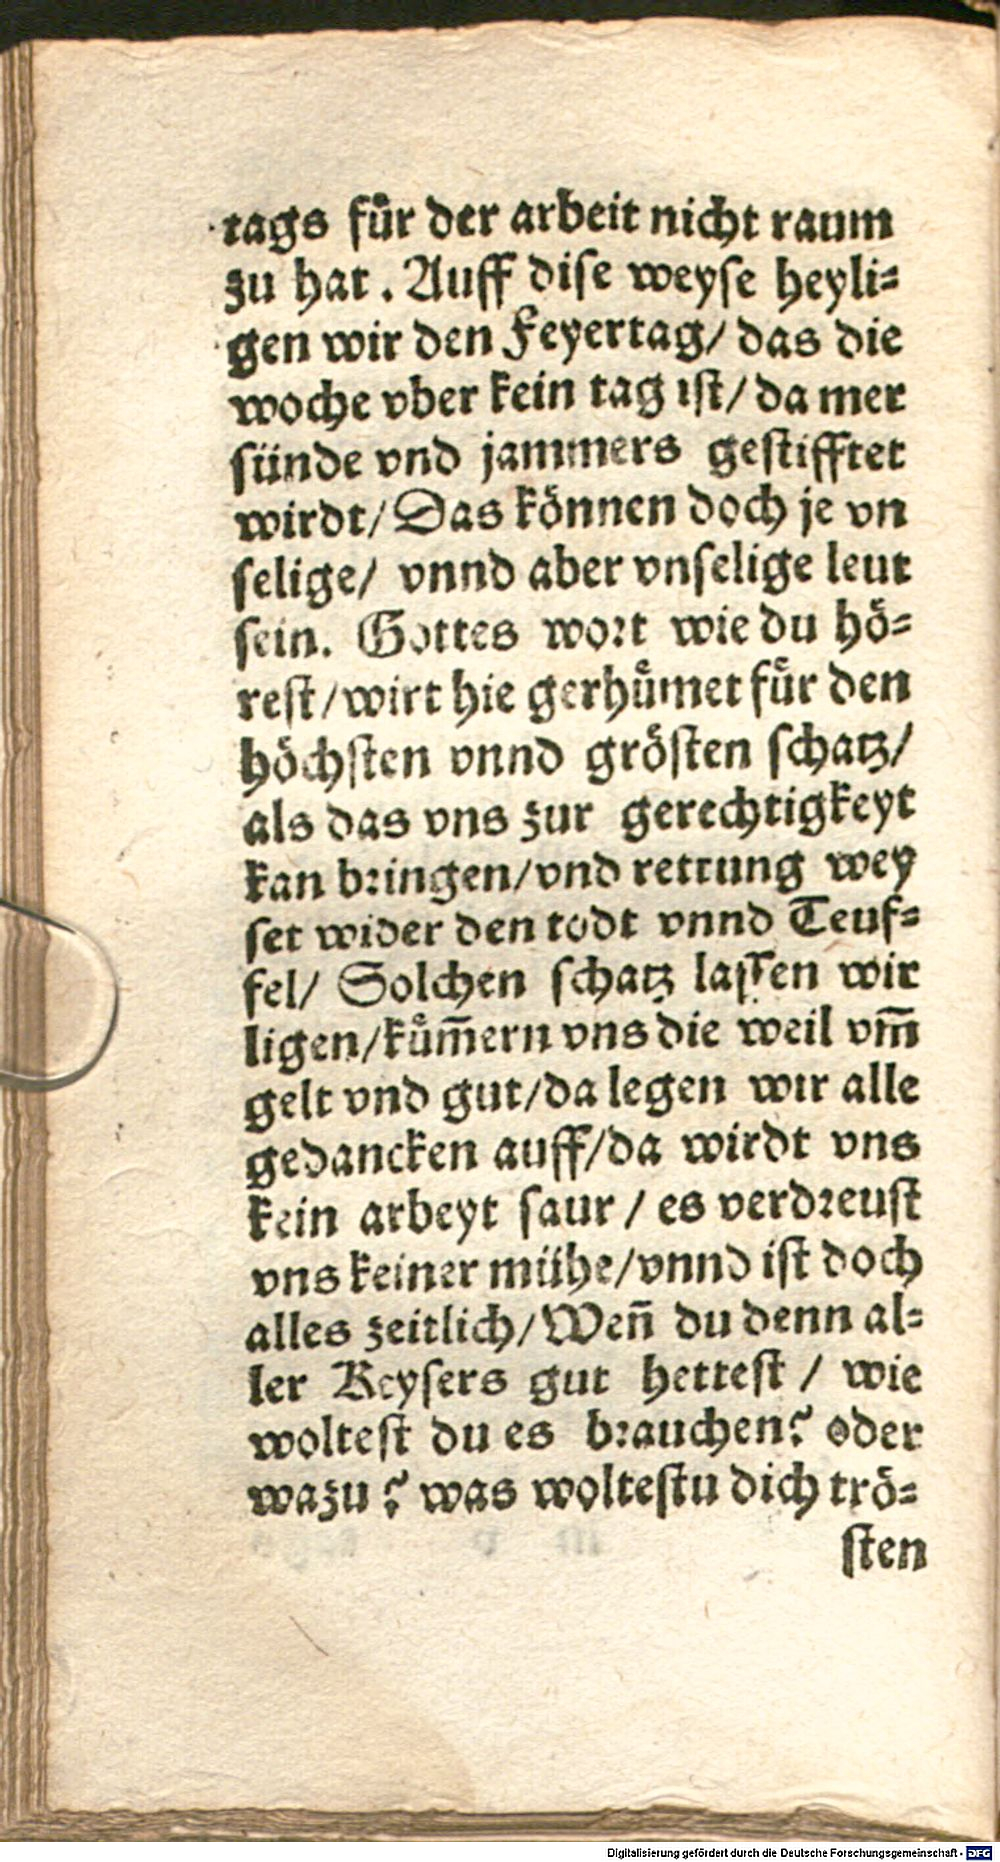 tags fuͤr der arbeit nicht raum
zu hat. Auff diſe weyſe heyli⸗
gen wir den Feyertag/ das die
woche vber kein tag iſt/ da mer
ſünde vnd jammers geſtifftet
wirdt/ Das können doch je vn
ſelige/ vnnd aber vnſelige leut
ſein. Gottes wort wie du hoͤ⸗
reſt/ wirt hie gerhuͤmet fuͤr den
höchſten vnnd gröſten ſchatz/
als das vns zur gerechtigkeyt
kan bringen/ vnd rettung wey
ſet wider den todt vnnd Teuf⸗
fel/ Solchen ſchatz laſſen wir
ligen/ kuͤm̃ern vns die weil vm̃
gelt vnd gut/ da legen wir alle
gedancken auff/ da wirdt vns
kein arbeyt ſaur / es verdreuſt
vns keiner mühe/ vnnd iſt doch
alles zeitlich/ Weñ du denn al⸗
ler Keyſers gut hetteſt / wie
wolteſt du es brauchen? oder
wazu? was wolteſtu dich trö⸗
ſten
Digitalisierung gefördert durch die Deutsche Forschungsgemeinschaft - DFG